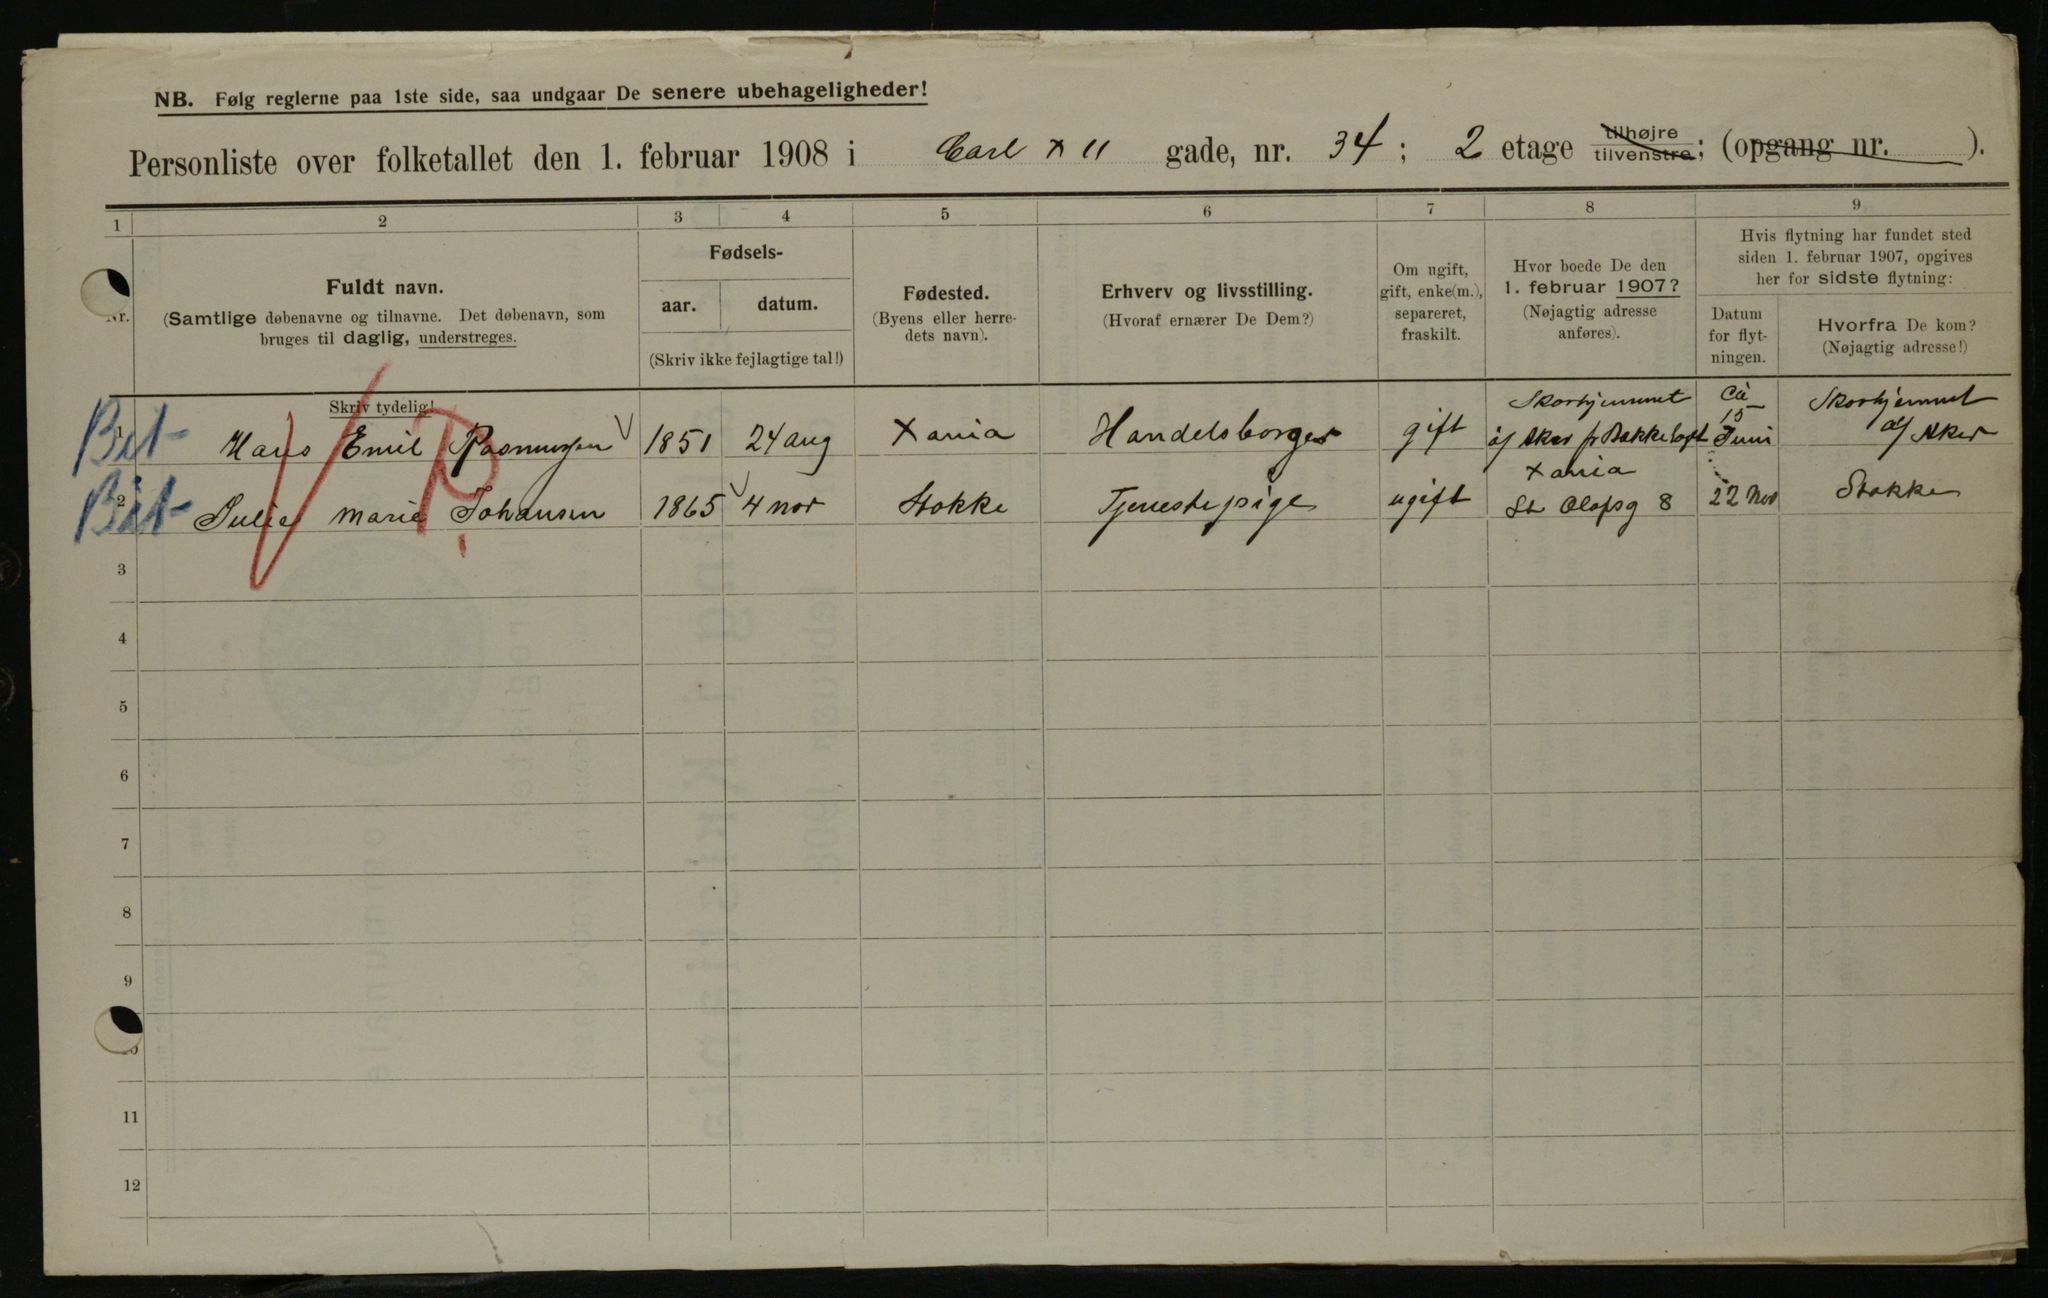 NB. Følg reglerne paa 1ste side, saa undgaar De senere ubehageligheder!
Personliste over folketallet den 1. februar 1908 i Carl XII gade, nr. 34; 2 etage tilhøjre tilvenstre; (opgang nr. ).
1 2 3 4 5 6 7 8 9
Nr.
Fuldt navn.
(Samtlige døbenavne og tilnavne. Det døbenavn, som
bruges til daglig, understreges.
Skriv tydelig!
Fødsels-
aar. datum.
(Skriv ikke fejlagtige tal!)
Fødested.
(Byens eller herre-
dets navn).
Erhverv og livsstilling.
(Hvoraf ernærer De Dem?)
Om ugift,
gift, enke(m.),
separeret,
fraskilt.
Hvor boede De den
1. februar 1907?
(Nøjagtig adresse
anføres).
Hvis flytning har fundet sted
siden 1. februar 1907, opgives
her for sidste flytning:
Datum
for flyt-
ningen.
Hvorfra De kom?
(Nøjagtig adresse!)
Bet 1 Hans Emil Rasmussen 1851 24 aug Xania Handelsborger gift Skovhjemmet Ca 15 Juni Skovhjemmet
af Aker
Bet 2 Julie Marie Johansen 1865 4 nov Stokke Tjenestepige ugift Xania
St Olafsg 8 22 Nov Stokke
R.
3
4
5
6
7
8
9
11
12